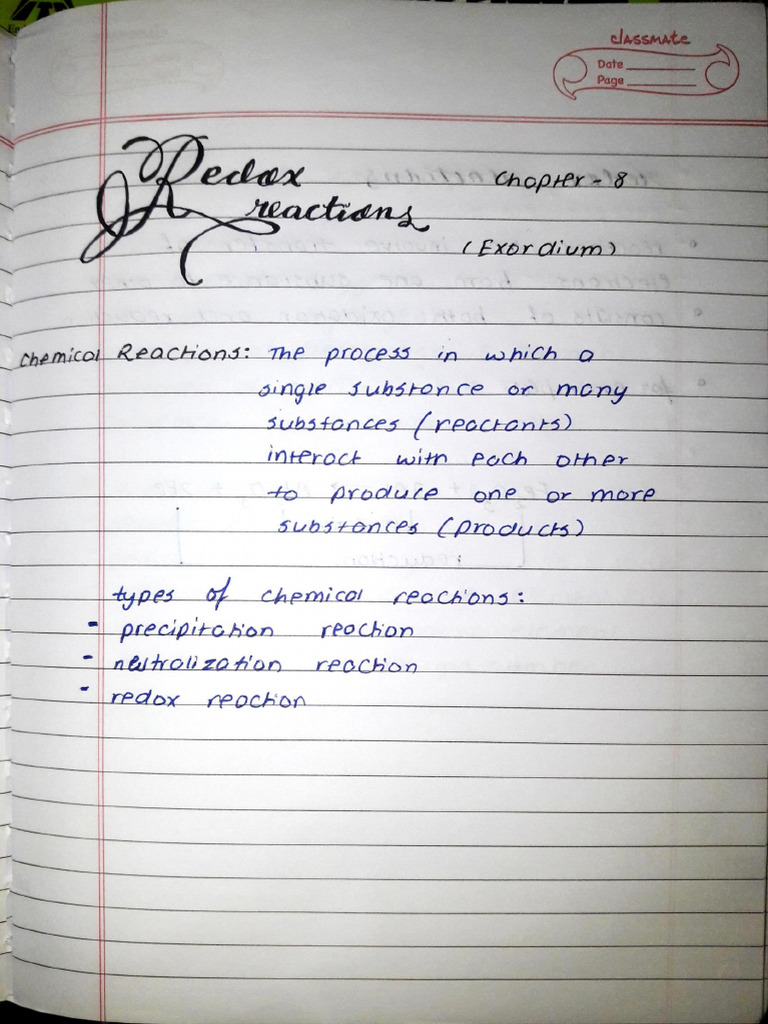 classmate
Date
Page
Redox
reactions
Chapter - 8
(Exordium)
Chemical Reactions: The process in which a
single substance or many
substances (reactants)
interact with each other
to produce one or more
substances (products)
types of chemical reactions:
- precipitation reaction
- neutralization reaction
- redox reaction